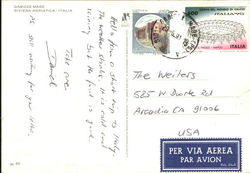 GABICCE MARE
RIVIERA ADRIATICA - ITALIA
Hello from a short trip to Italy.
The weather stinks. It is cold and
rainy. But the food is good.
Take care
David
PS still waiting for your letter.
ITALIA
ITALIA
The Weilers
525 W Duarte Rd
Arcadia CA 91006
USA
PER VIA AEREA
PAR AVION